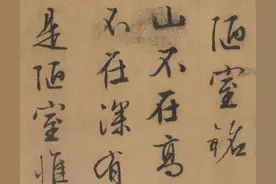 陋室铭
山不在高
不在深有
是陋室惟